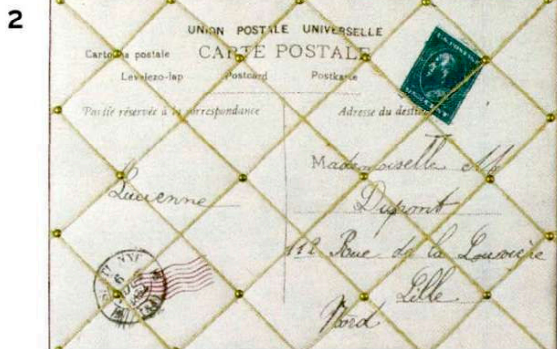 2
UNION POSTALE UNIVERSELLE
CARTE POSTALE
postale
Levelezo-lap Postcard Postkarte
Partie réservée à la correspondance Adresse du
Lucienne
Mademoiselle
Dupont
112 Rue de la Louvière
Lille
Nord